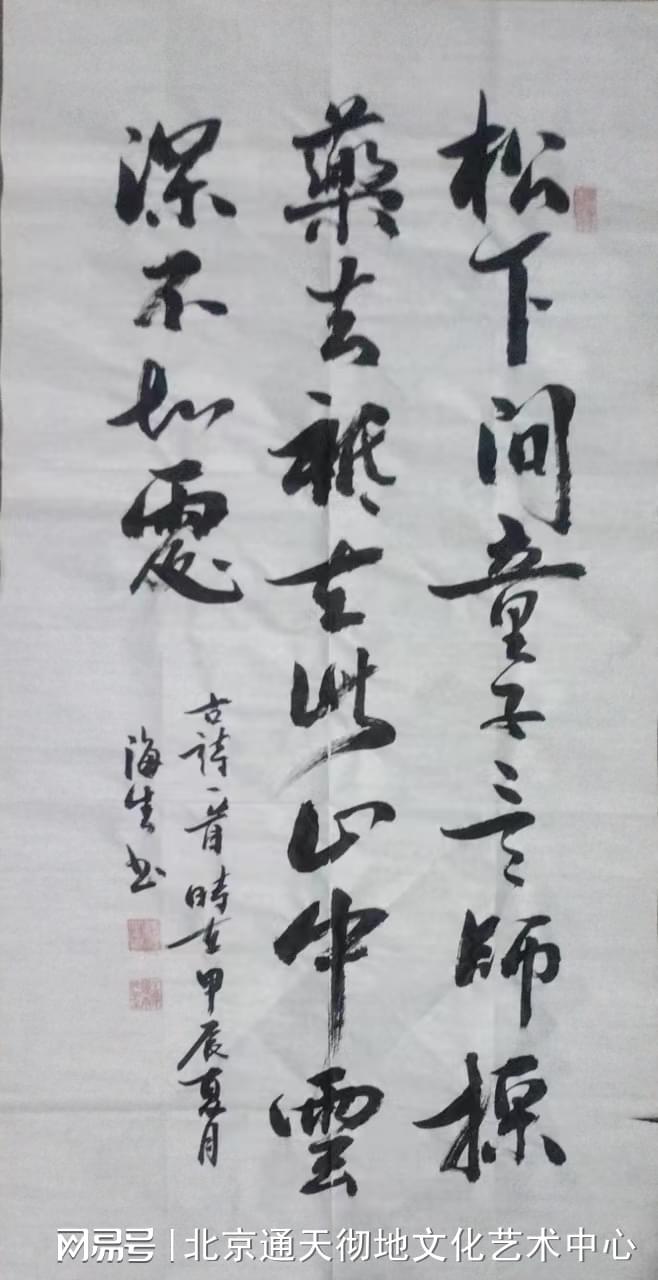 松下问童子言师採
藥去祗在此山中雲
深不知處
古詩一首時在甲辰夏月
海生书
网易号|北京通天彻地文化艺术中心